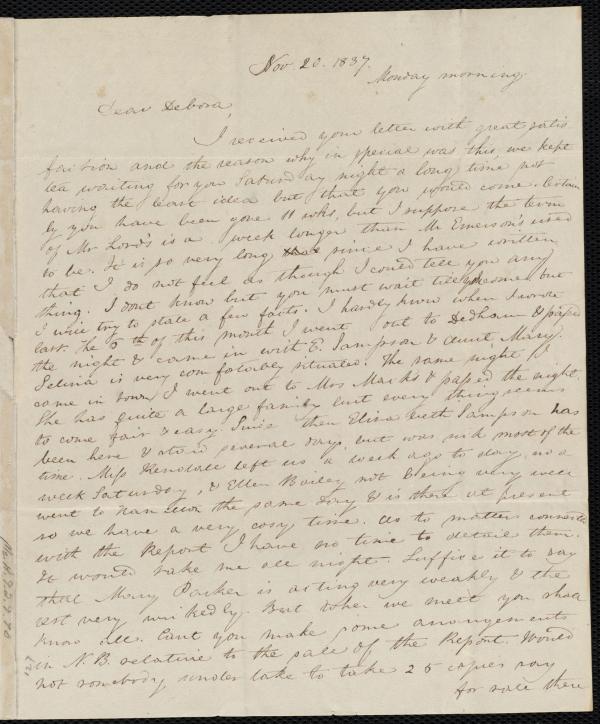 Nov. 20. 1837.
Monday morning.
Dear Debora,
I received your letter with great satis
faction and the reason why in special was this, we kept
tea waiting for you Saturday night a long time not
having the least idea but that you would come. Certain
ly you have been gone 11 wks, but I suppose the term
of Mr Lord's is a week longer than Mr Emerson's used
to be. It is so very long since I have written
that I do not feel as though I could tell you any
thing. I dont know but you must wait till I come but
I will try to state a few facts. I hardly know when I wrote
last. The 8th of this month I went out to Dedham & passed
the night & came in with E. Sampson & Aunt Mary.
Selina is very comfortably situated. The same night I
came in town I went out to Mrs Marks & passed the night.
She has quite a large family but every thing seems
to come fair & easy. Since then Elizabeth Sampson has
been here & staid several days but was sick most of the
time. Miss Kendall left us a week ago to day, no a
week Saturday, & Ellen Bailey not being very well
went to the same day & is there at present
so we have a very cosy time. As to matters connected
with the Report I have no time to detail them.
It would take me all night. Suffice it to say
that Mary Parker is acting very weakly & the
rest very wickedly. But when we meet you shall
know all. Cant you make some arrangements
in N.B. relative to the sale of the Report. Would
not somebody under take to take 25 copies say
for sale there